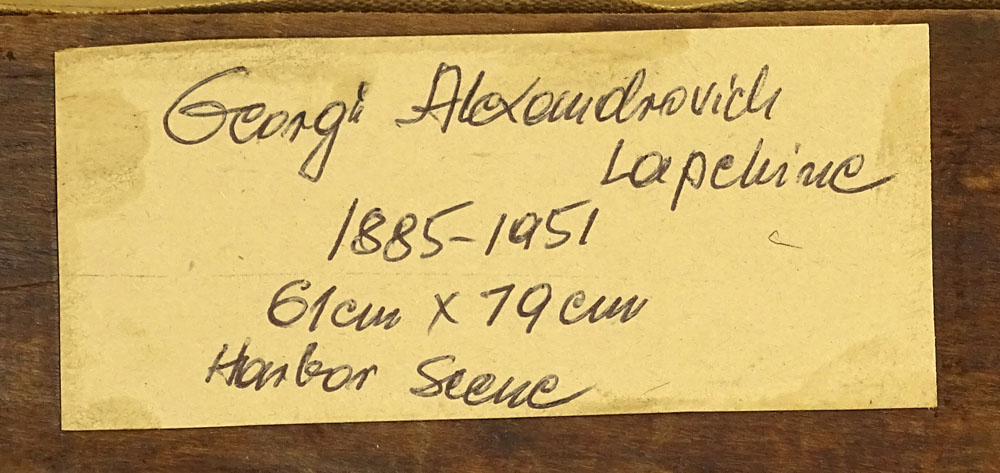 Georgi Alexandrovich
Lapchine
1885-1951
61cm x 79cm
Harbor Scene